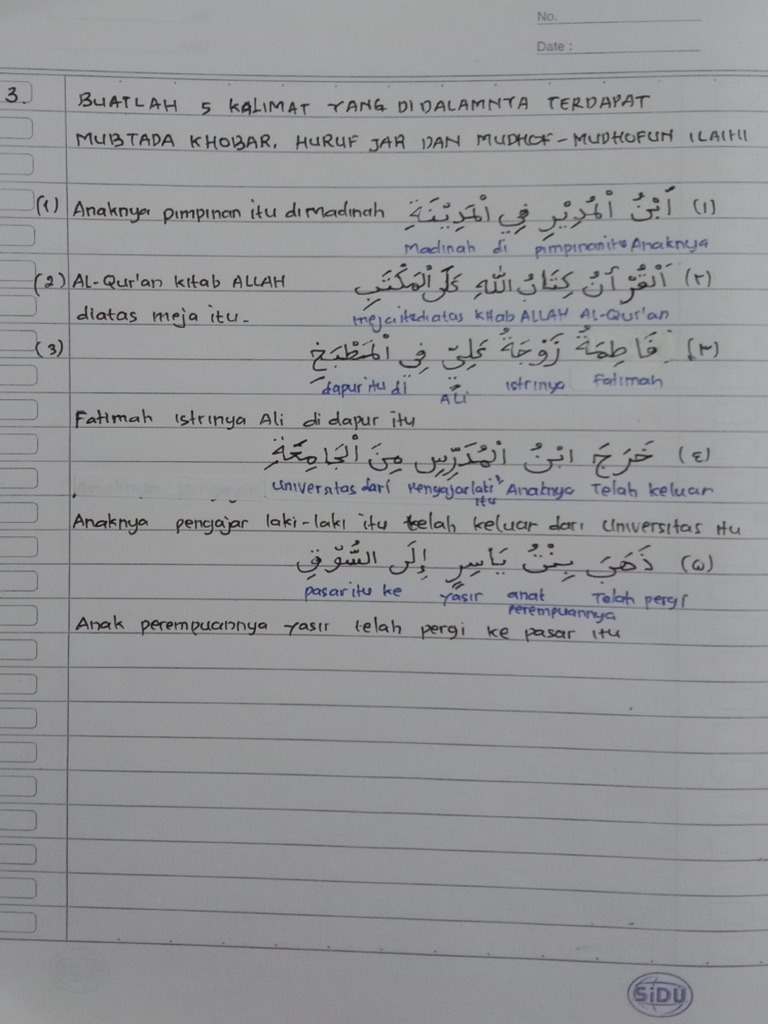 No.
Date :
3. BUATLAH 5 KALIMAT YANG DIDALAMNYA TERDAPAT
MUBTADA KHOBAR, HURUF JAR DAN MUDHOF-MUDHOFUN ILAIHI
(1) Anaknya pimpinan itu dimadinah (١) اَبْنُ الْمُدِيْرِ فِي الْمَدِيْنَةِ
Madinah di pimpinanitu Anaknya
(2) Al-Qur'an kitab ALLAH (٢) اَلْقُرْأَنُ كِتَابُ اللّٰهِ عَلَى الْمَكْتَبِ
diatas meja itu. mejaitudiatas kitab ALLAH Al-Qur'an
(3) (٣) فَاطِمَةُ زَوْجَةُ عَلِيٍّ فِي الْمَطْبَخِ
dapur itu di Ali istrinya Fatimah
Fatimah istrinya Ali di dapur itu
(٤) خَرَجَ ابْنُ الْمُدَرِّسِ مِنَ الْجَامِعَةِ
universitas dari pengajar laki² itu Anaknya Telah keluar
Anaknya pengajar laki-laki itu telah keluar dari universitas itu
(٥) ذَهَبَ بِنْتُ يَاسِرٍ إِلَى السُّوْقِ
pasar itu ke yasir anak perempuannya Telah pergi
Anak perempuannya yasir telah pergi ke pasar itu
SiDU